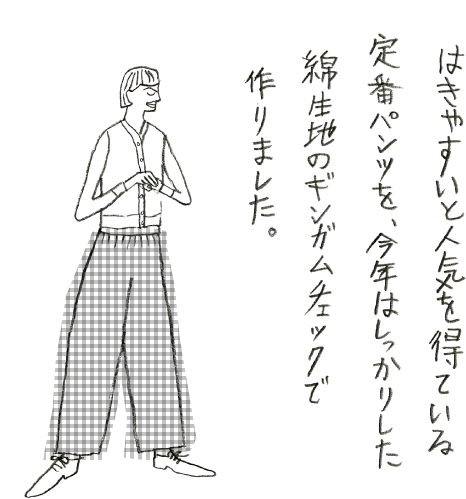 はきやすいと人気を得ている
定番パンツを、今年はしっかりした
綿生地のギンガムチェックで
作りました。